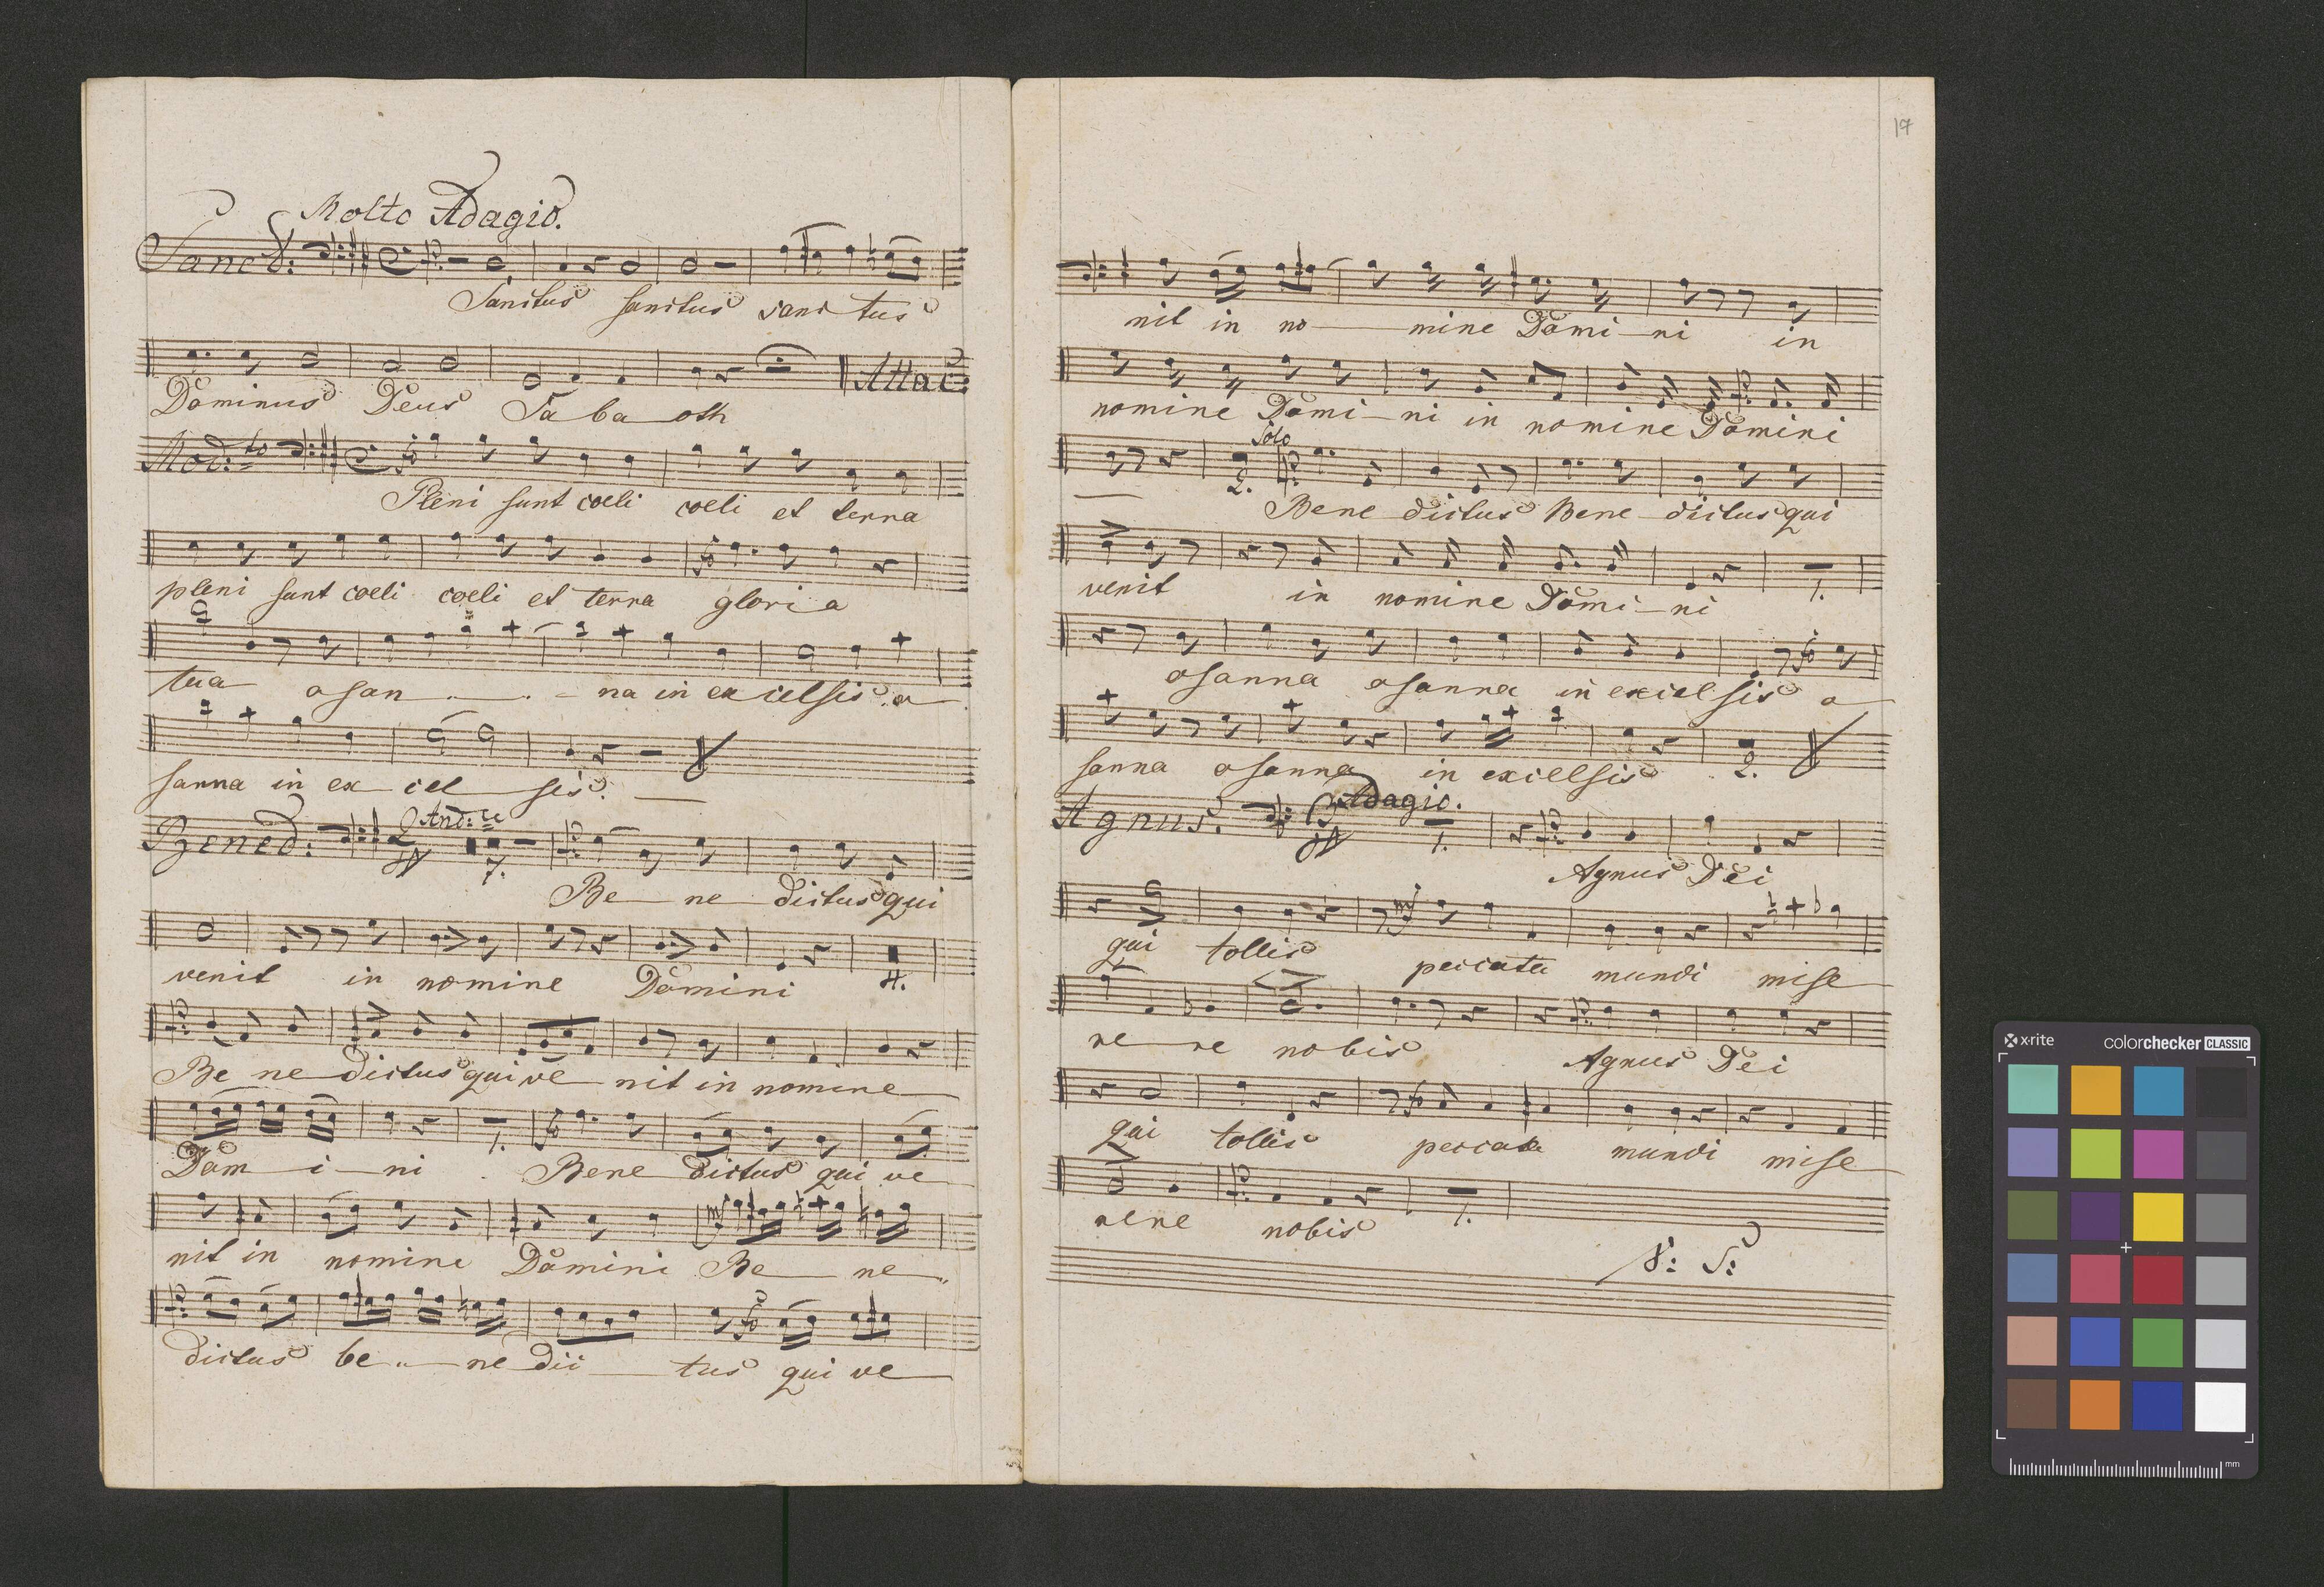 Molto Adagio.
Sanct:
Sanctus sanctus sanc tus
Attac:
Dominus Deus Sa ba oth
Mod:to
Pleni sunt coeli coeli et terra
pleni sunt coeli coeli et terra gloria
tua osan - - - na in excelsis o
sanna in ex cel sis.
Bened: And:te
7.
Be ne dictus qui
venit in nomine Domini
4.
Be ne dictus qui ve nit in nomine
1.
Dom i ni Bene dictus qui ve
nit in nomine Domini Be ne
dictus be ne dic tus qui ve
17
nit in no mine Domi ni in
nomine Domi ni in nomine Domini
Solo
2.
Bene dictus Bene dictus qui
venit in nomine Domi ni
1.
osanna osanna in excel sis o
sanna osanna in excelsis
2.
Agnus. Adagio.
1.
Agnus Dei
qui tollis peccata mundi mise
re re nobis Agnus Dei
qui tollis peccata mundi mise
rere nobis
1.
V: S:
x·rite colorchecker CLASSIC
mm